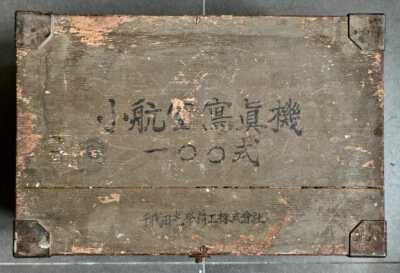 小航空寫眞機
一〇〇式
千代田光學精工株式會社